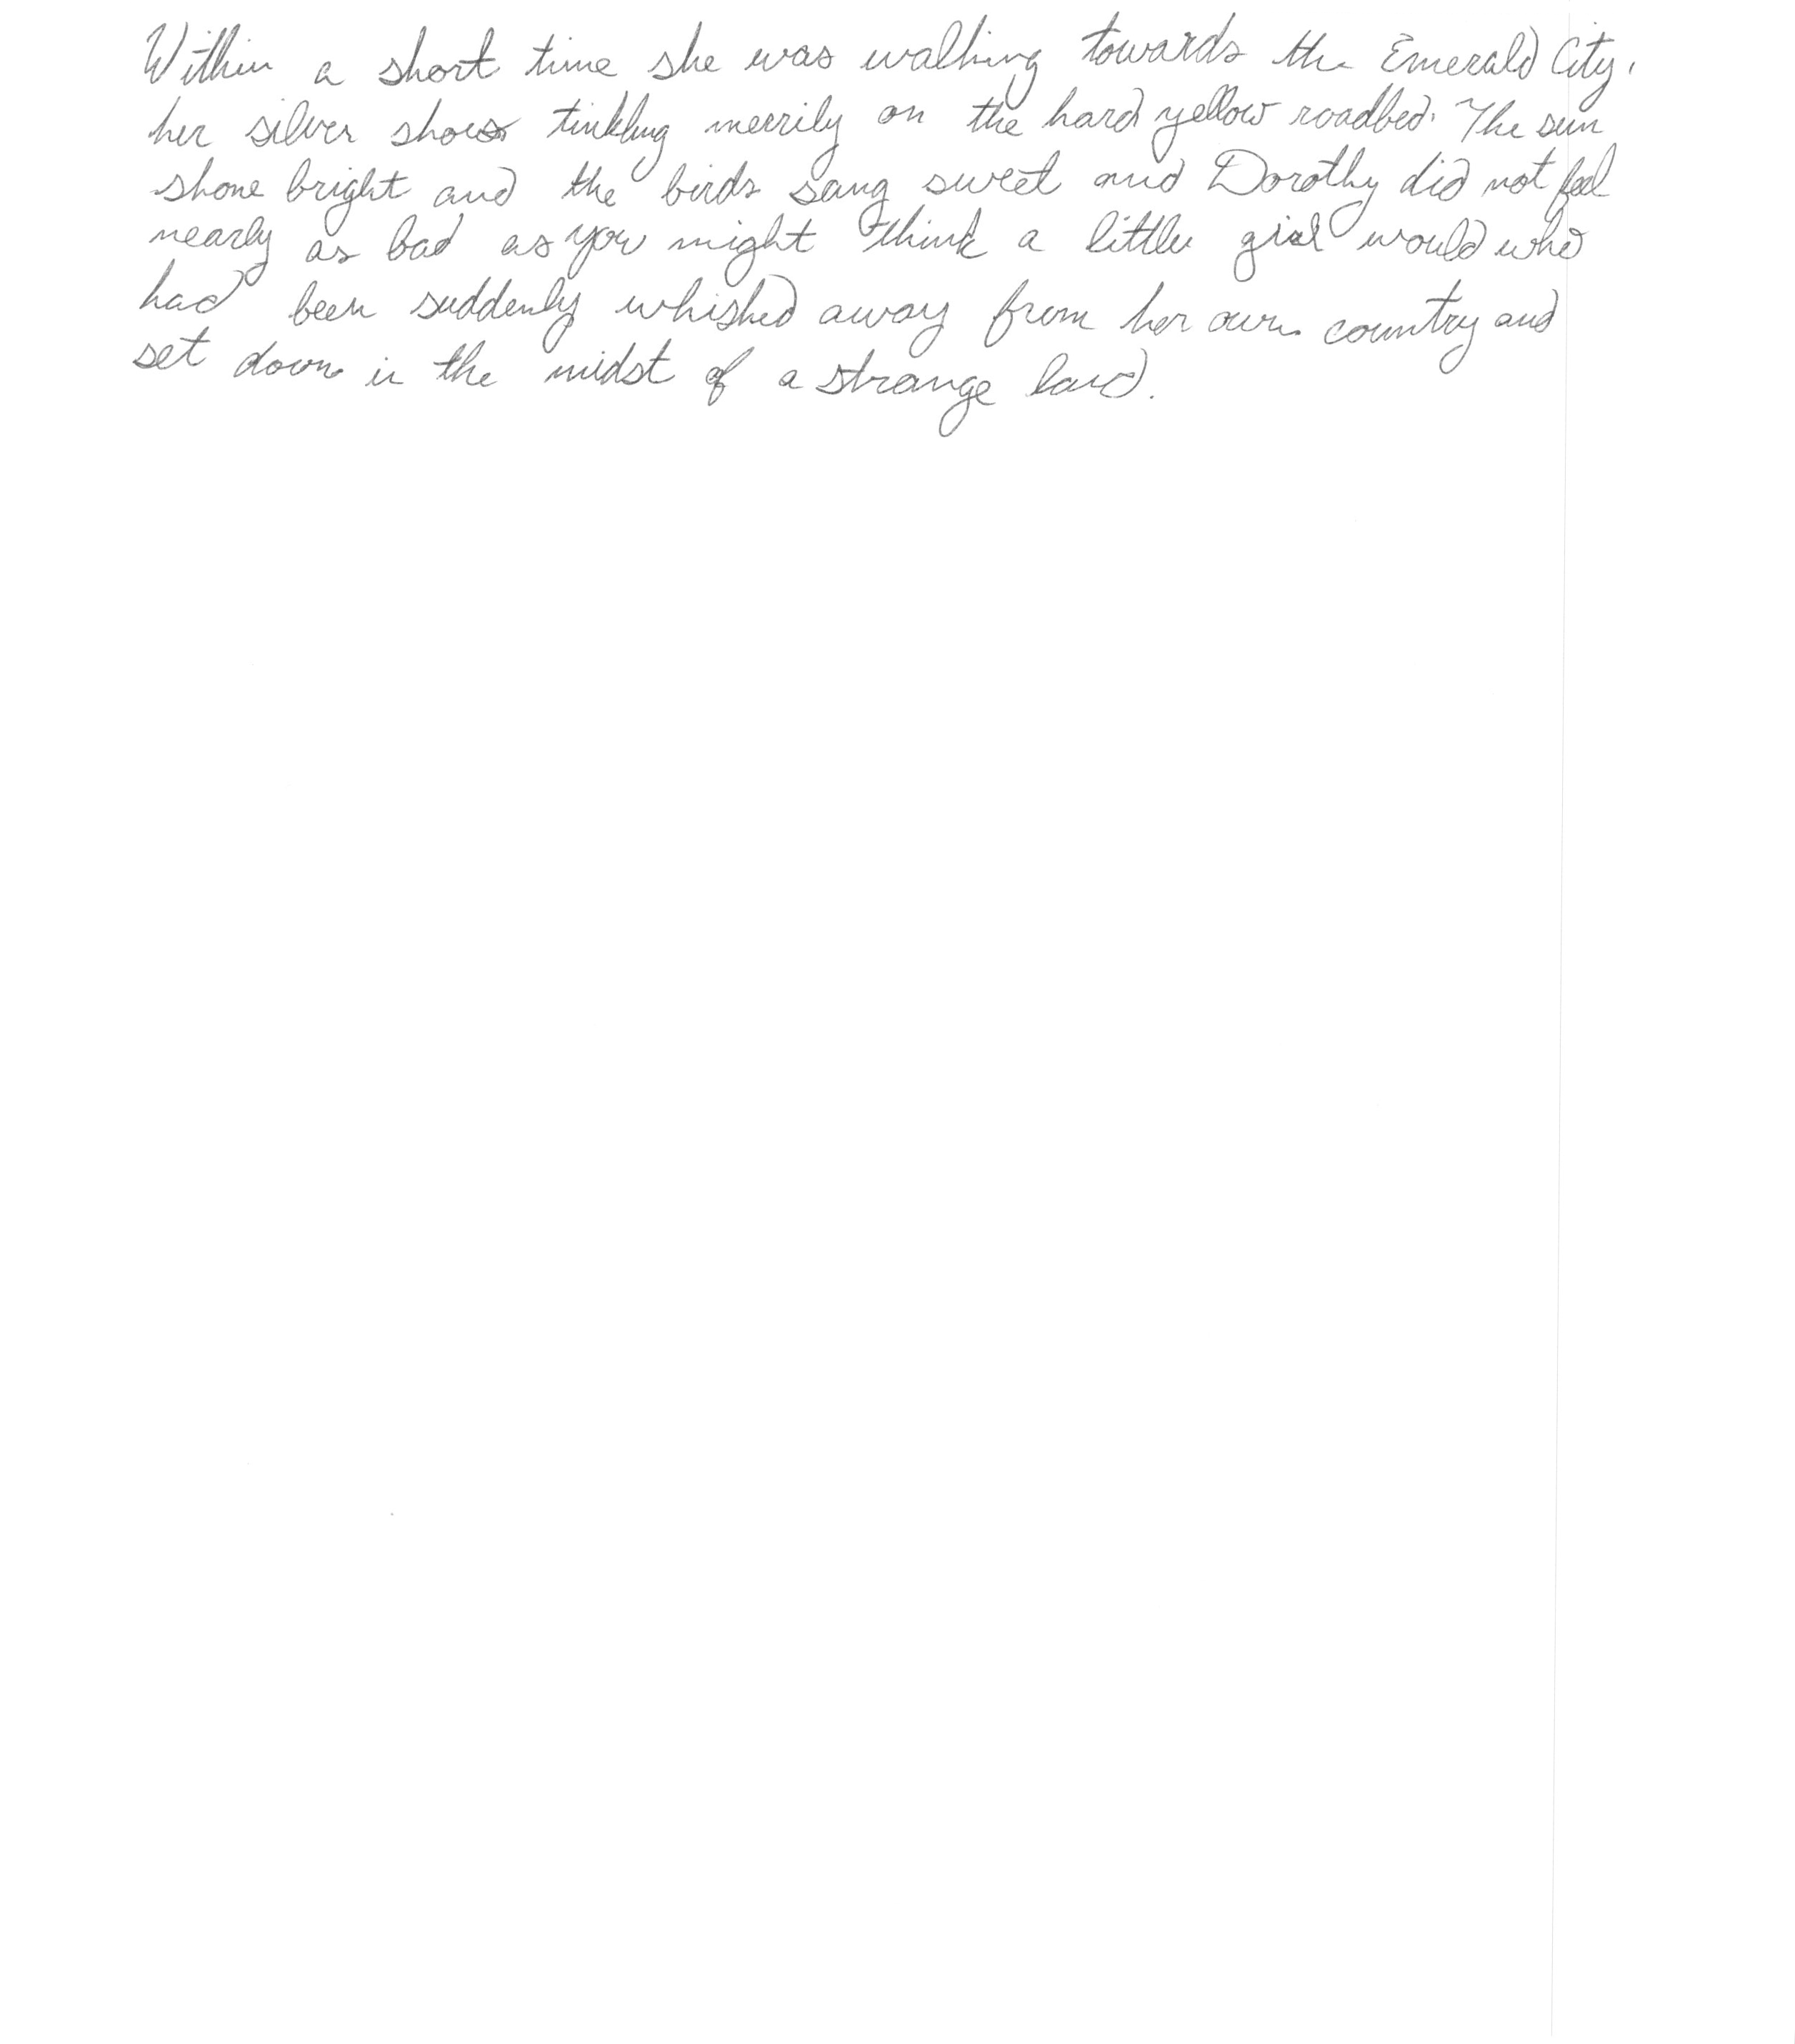 Within a short time she was walking towards the Emerald City,
her silver shoes tinkling merrily on the hard yellow roadbed. The sun
shone bright and the birds sang sweet and Dorothy did not feel
nearly as bad as you might think a little girl would who
had been suddenly whished away from her own country and
set down in the midst of a strange land.